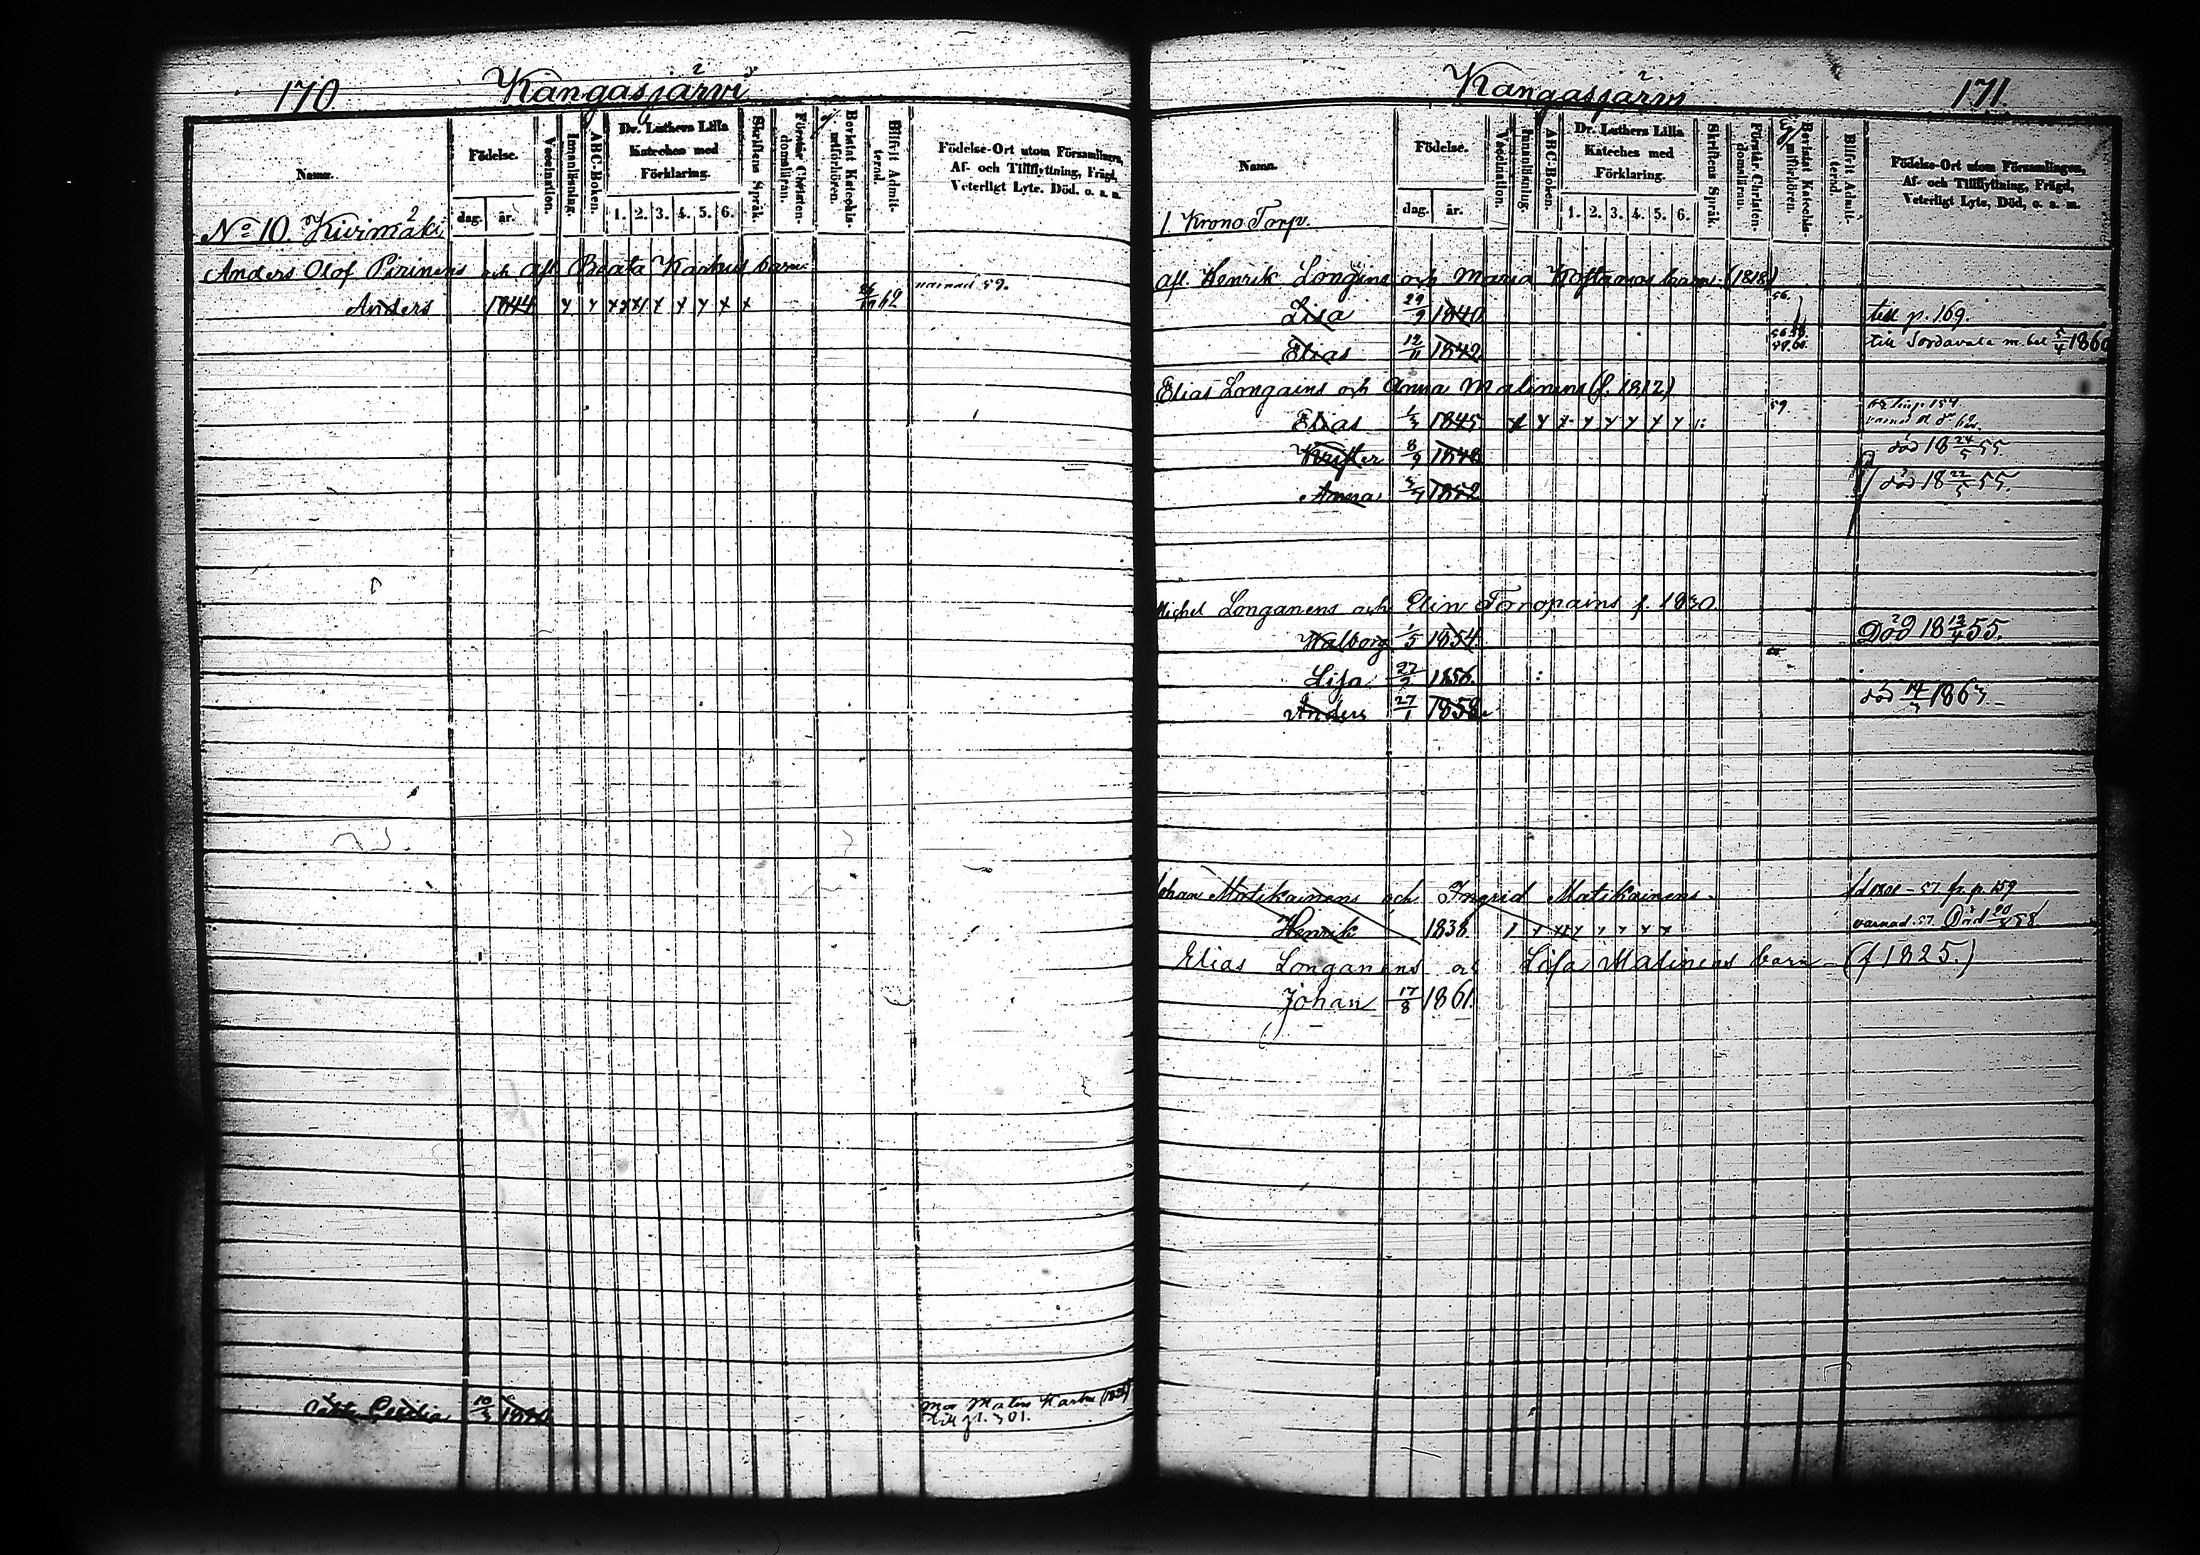 170 Kangasjärvi
Namn. Födelse. dag. år. Vaccination. Innanläsning. ABC-Boken. Dr. Luthers Lilla Kateches med Förklaring. 1. 2. 3. 4. 5. 6. Skriftens Språk. Förstår Christendomsläran. Bevistat Katechismiförhören. Blifvit Admitterad. Födelse-Ort utom Församlingen, Af- och Tillflyttning, Frägd, Veterligt Lyte, Död, o. s. m.
No 10. Kivimäki
Anders Olof Pirinens och afl. Beata Karhus barn
Anders 1844 62 varnad 59.
10/3
till p. 301.
Kangasjärvi 171.
Namn. Födelse. dag. år. Vaccination. Innanläsning. ABC-Boken. Dr. Luthers Lilla Kateches med Förklaring. 1. 2. 3. 4. 5. 6. Skriftens Språk. Förstår Christendomsläran. Bevistat Katechismiförhören. Blifvit Admitterad. Födelse-Ort utom Församlingen, Af- och Tillflyttning, Frägd, Veterligt Lyte, Död, o. s. m.
1. Krono Torp.
afl. Henrik Longains och Maria barn (1818)
Lisa 29/9 1840 56. till p. 169.
Elias 12/11 1842 till Sordavala m. bet 5/4 1860
Elias Longains och Anna Malinens (f. 1812)
Elias 1845 59
Krister 8/9 1848 död 18 24/5 55.
Anna 1852 död 18 22/5 55.
Michel Longanens och Elin Toropains f. 1830
Walborg 1/5 1854. Död 18 55.
Lisa 27/2 1856.
Anders 27/1 1858. död 1863.
Johan Matikainens och Ingrid Matikainens fr. p. 159
Henrik 1838 varnad 57. Död 58.
Elias Longanens och Lisa Malinens barn (f 1825.)
Johan 17/8 1861.